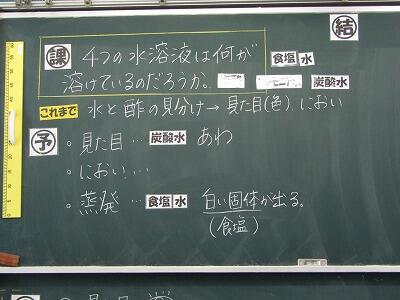 結
課 4つの水溶液は何が 食塩水
溶けているのだろうか。 炭酸水
これまで 水と酢の見分け→見た目(色)、におい
予 ・見た目…炭酸水 あわ
・におい…
・蒸発…食塩水 白い固体が出る。
(食塩)